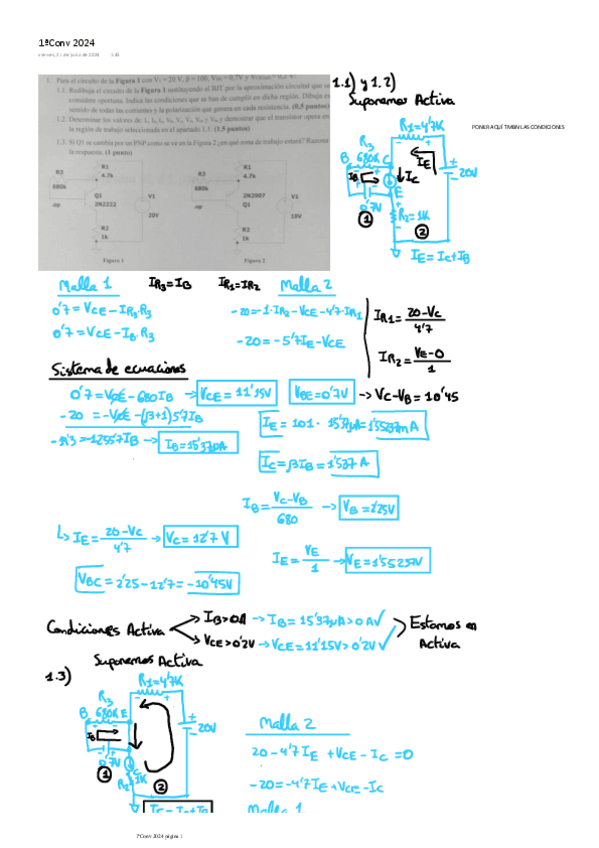 1ªConv 2024
viernes, 21 de junio de 2024
1. Para el circuito de la Figura 1 con V1 = 20 V, β = 100, VBE = 0,7V y
1.1. Redibuja el circuito de la Figura 1 sustituyendo el BJT por la aproximación circuital que se
considere oportuna. Indica las condiciones que se han de cumplir en dicha región. Dibuja en
sentido de todas las corrientes y la polarización que genera en cada resistencia. (0,5 puntos)
1.2. Determinar los valores de: y demostrar que el transistor opera en
la región de trabajo seleccionada en el apartado 1.1. (1.5 puntos)
1.3. Si Q1 se cambia por un PNP como se ve en la Figura 2 ¿en qué zona de trabajo estará? Razona
la respuesta. (1 punto)
R3
680k
R1
4.7k
Q1
2N2222
V1
20V
R2
1k
Figura 1
R3
680k
R1
4.7k
2N2907
Q1
V1
R2
1k
Figura 2
1.1) y 1.2)
Suponemos Activa
PONER AQUÍ TMBN LAS CONDICIONES
R1=4'7K
R3
B 680K C
IB
IC
IE
20V
0'7V
E
R2=1K
1
2
IE = IC+IB
Malla 1
IR3=IB
IR1=IR2
Malla 2
0'7 = VCE - IR3·R3
0'7 = VCE - IB·R3
-20 = -1·IR2 - VCE - 4'7·IR1
-20 = -5'7IE - VCE
IR1 = 20-VC / 4'7
IR2 = VE-0 / 1
Sistema de ecuaciones
0'7 = VCE - 680IB → VCE = 11'15V
VBE=0'7V → VC-VB = 10'45
-20 = -VCE - (β+1)5'7IB
-19'3 = -1255'7IB → IB=15'37μA
IE = 101 · 15'37μA = 1'5523mA
IC = βIB = 1'537 A
IB = VC-VB / 680 → VB = 2'25V
↳ IE = 20-VC / 4'7 → VC = 12'7 V
IE = VE / 1 → VE = 1'5523V
VBC = 2'25-12'7 = -10'45V
Condiciones Activa
IB>0A → IB = 15'37μA > 0A ✓
VCE>0'2V → VCE = 11'15V > 0'2V ✓
Estamos en
Activa
Suponemos Activa
1.3)
R1=4'7K
R3
B 680K E
IB
20V
0'7V
C
R2 1K
1
2
IE = IC+IB
Malla 2
20-4'7IE + VCE - IC = 0
-20 = -4'7IE + VCE - IC
Malla 1
1ªConv 2024 página 1